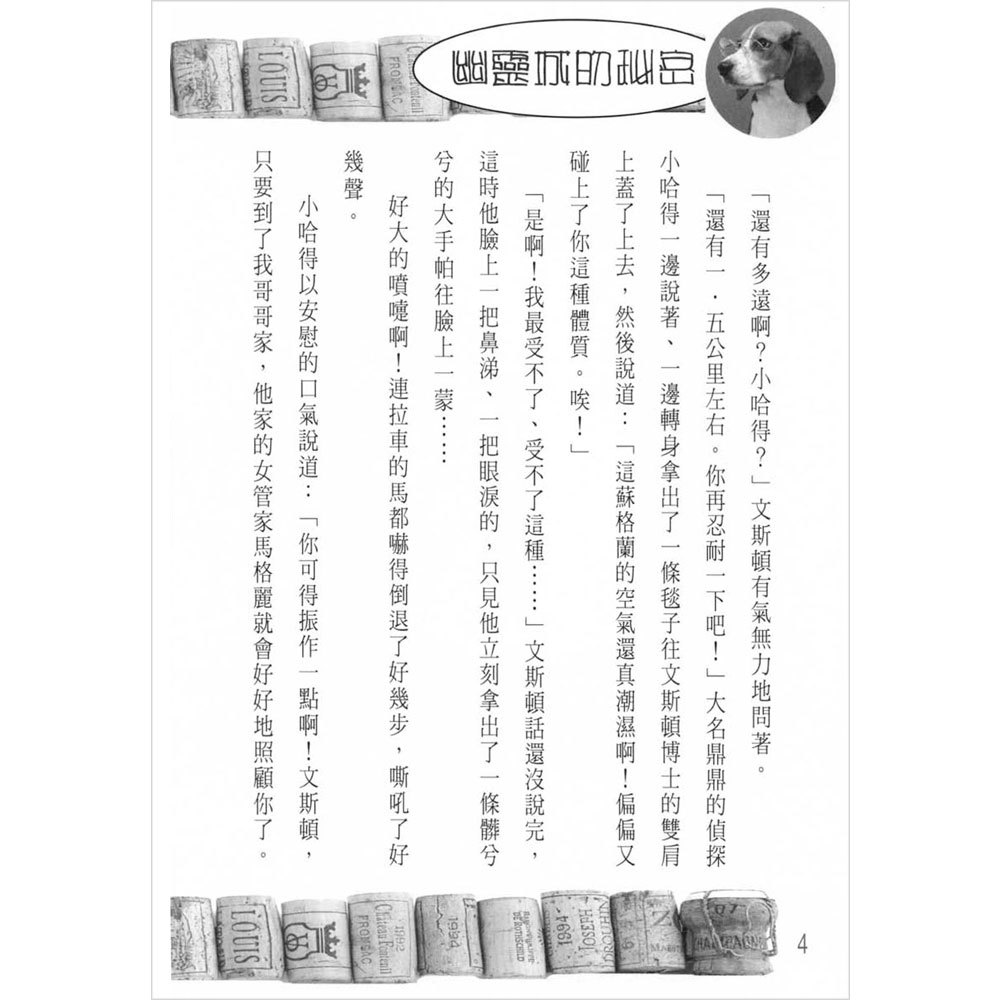 幽靈城的秘密
「還有多遠啊？小哈得？」文斯頓有氣無力地問著。
「還有一．五公里左右。你再忍耐一下吧！」大名鼎鼎的偵探
小哈得一邊說著、一邊轉身拿出了一條毯子往文斯頓博士的雙肩
上蓋了上去，然後說道：「這蘇格蘭的空氣還真潮濕啊！偏偏又
碰上了你這種體質。唉！」
「是啊！我最受不了、受不了這種……」文斯頓話還沒說完，
這時他臉上一把鼻涕、一把眼淚的，只見他立刻拿出了一條髒兮
兮的大手帕往臉上一蒙……
好大的噴嚏啊！連拉車的馬都嚇得倒退了好幾步，嘶吼了好
幾聲。
小哈得以安慰的口氣說道：「你可得振作一點啊！文斯頓，
只要到了我哥哥家，他家的女管家馬格麗就會好好地照顧你了。
LOUIS
Château Fonteuil
FRONSAC
LOUIS
1992
Château Fonteuil
FRONSAC
1994
DE ROTHSCHILD
1994
JOSEPH
CHAMPAGNE
4